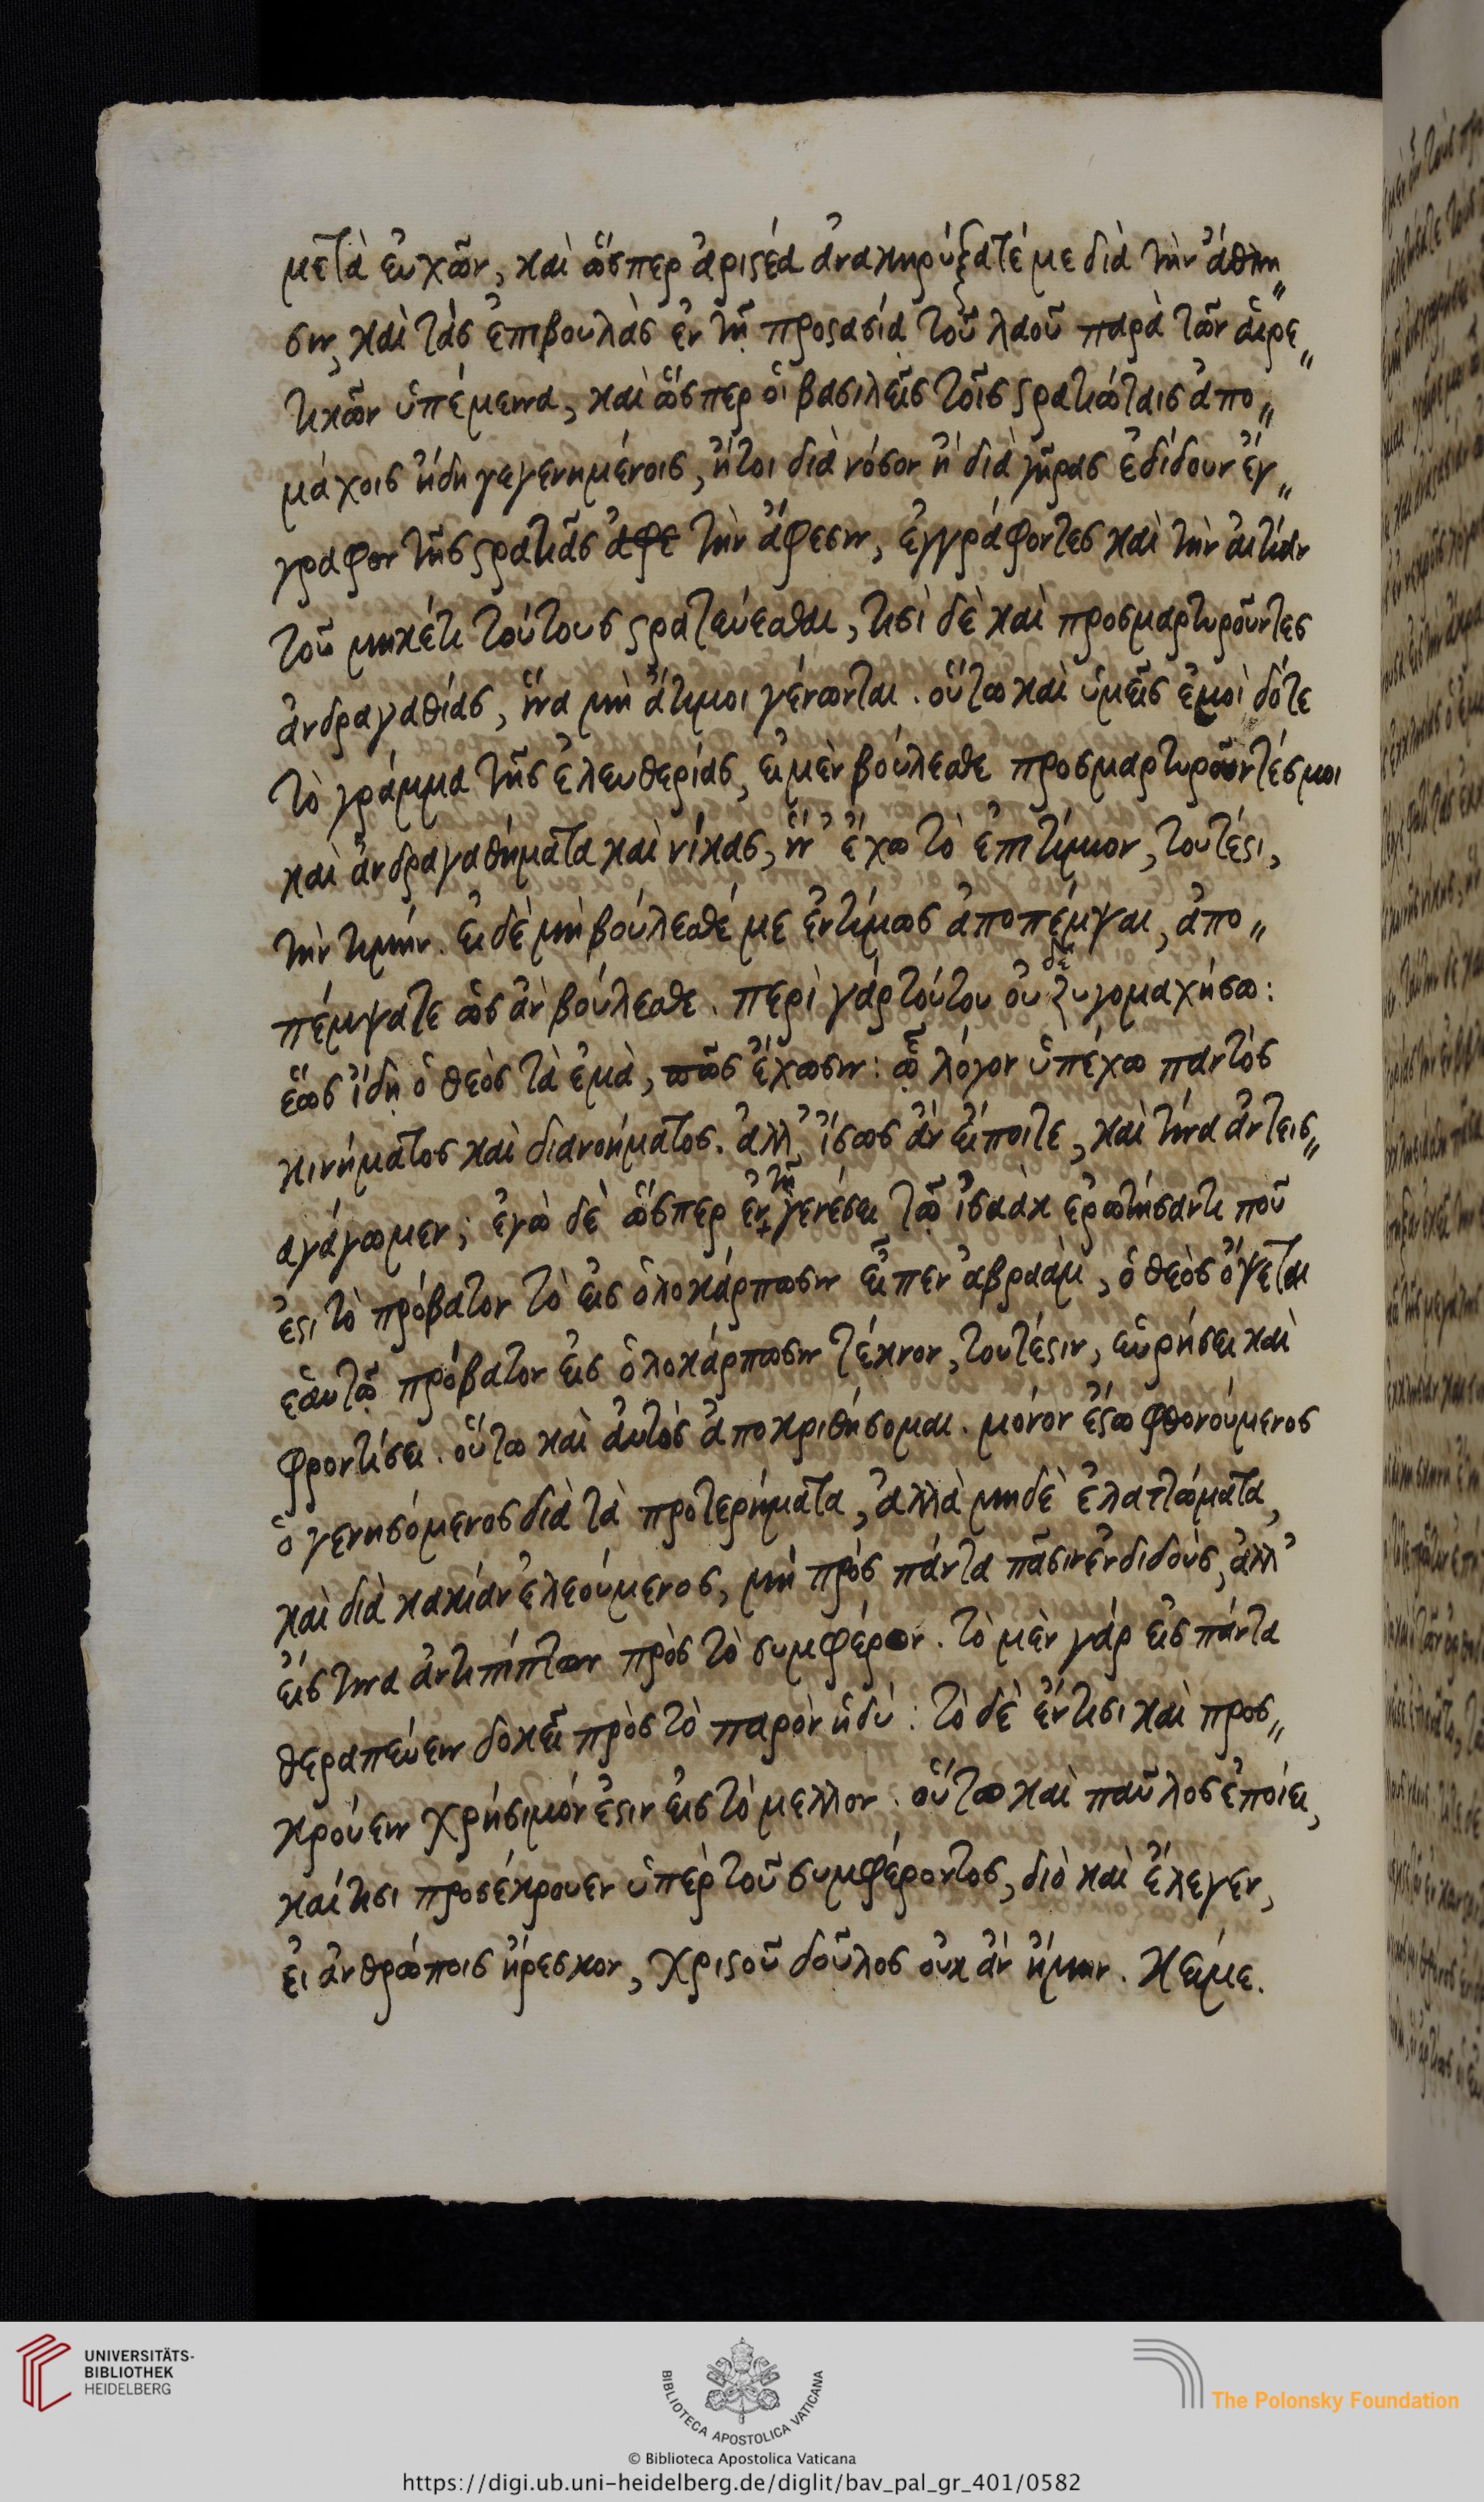 μετὰ εὐχῶν, καὶ ὥσπερ ἀριστέα ἀνακηρύξατέ με διὰ τὴν ἄθλη
σιν, καὶ τὰς ἐπιβουλὰς ἐν τῇ προστασίᾳ τοῦ λαοῦ παρὰ τῶν αἱρε
τικῶν ὑπέμεινα, καὶ ὥσπερ οἱ βασιλεῖς τοῖς στρατιώταις ἀπο
μάχοις ἤδη γεγενημένοις, ἤτοι διὰ νόσον ἢ διὰ γῆρας ἐδίδουν ἔγ
γραφον τῆς στρατιᾶς ἀφε τὴν ἄφεσιν, ἐγγράφοντες καὶ τὴν αἰτίαν
τοῦ μηκέτι τούτους στρατεύεσθαι, τισὶ δὲ καὶ προσμαρτυροῦντες
ἀνδραγαθίας, ἵνα μὴ ἄτιμοι γένωνται. οὕτω καὶ ὑμεῖς ἐμοὶ δότε
τὸ γράμμα τῆς ἐλευθερίας, εἰ μὲν βούλεσθε προσμαρτυροῦντές μοι
καὶ ἀνδραγαθήματα καὶ νίκας, ἵν' ἔχω τὸ ἐπιτίμιον, τουτέστι,
τὴν τιμήν. εἰ δὲ μὴ βούλεσθέ με ἐντίμως ἀποπέμψαι, ἀπο
πέμψατε ὡς ἂν βούλεσθε. περὶ γὰρ τούτου οὐδὲ ζυγομαχήσω:
ἕως ἴδῃ ὁ θεὸς τὰ ἐμὰ, πῶς ἔχωσιν: ᾧ λόγον ὑπέχω παντὸς
κινήματος καὶ διανοήματος. ἀλλ' ἴσως ἂν εἴποιτε, καὶ τίνα ἀντεισ
αγάγωμεν; ἐγὼ δὲ ὥσπερ ἐν τῇ γενέσει τῷ ἰσαὰκ ἐρωτήσαντι ποῦ
ἐστι τὸ πρόβατον τὸ εἰς ὁλοκάρπωσιν εἶπεν ἀβραὰμ, ὁ θεὸς ὄψεται
ἑαυτῷ πρόβατον εἰς ὁλοκάρπωσιν τέκνον, τουτέστιν, εὑρήσει καὶ
φροντίσει. οὕτω καὶ αὐτὸς ἀποκριθήσομαι. μόνον ἔστω φθονούμενος
ὁ γενησόμενος διὰ τὰ προτερήματα, ἀλλὰ μηδὲ ἐλαττώματα,
καὶ διὰ κακίαν ἐλεούμενος, μὴ πρὸς πάντα πᾶσιν ἐνδιδοὺς, ἀλλ'
εἴς τινα ἀντιπίπτων πρὸς τὸ συμφέρον. τὸ μὲν γὰρ εἰς πάντα
θεραπεύειν δοκεῖ πρὸς τὸ παρὸν ἡδύ: τὸ δὲ ἔν τισι καὶ προσ
κρούειν χρήσιμόν ἐστιν εἰς τὸ μέλλον. οὕτω καὶ παῦλος ἐποίει,
καί τισι προσέκρουεν ὑπὲρ τοῦ συμφέροντος, διὸ καὶ ἔλεγεν,
εἰ ἀνθρώποις ἤρεσκον, χριστοῦ δοῦλος οὐκ ἂν ἤμην. Η εἰμε.
UNIVERSITÄTS-
BIBLIOTHEK
HEIDELBERG
BIBLIOTECA APOSTOLICA VATICANA
The Polonsky Foundation
© Biblioteca Apostolica Vaticana
https://digi.ub.uni-heidelberg.de/diglit/bav_pal_gr_401/0582